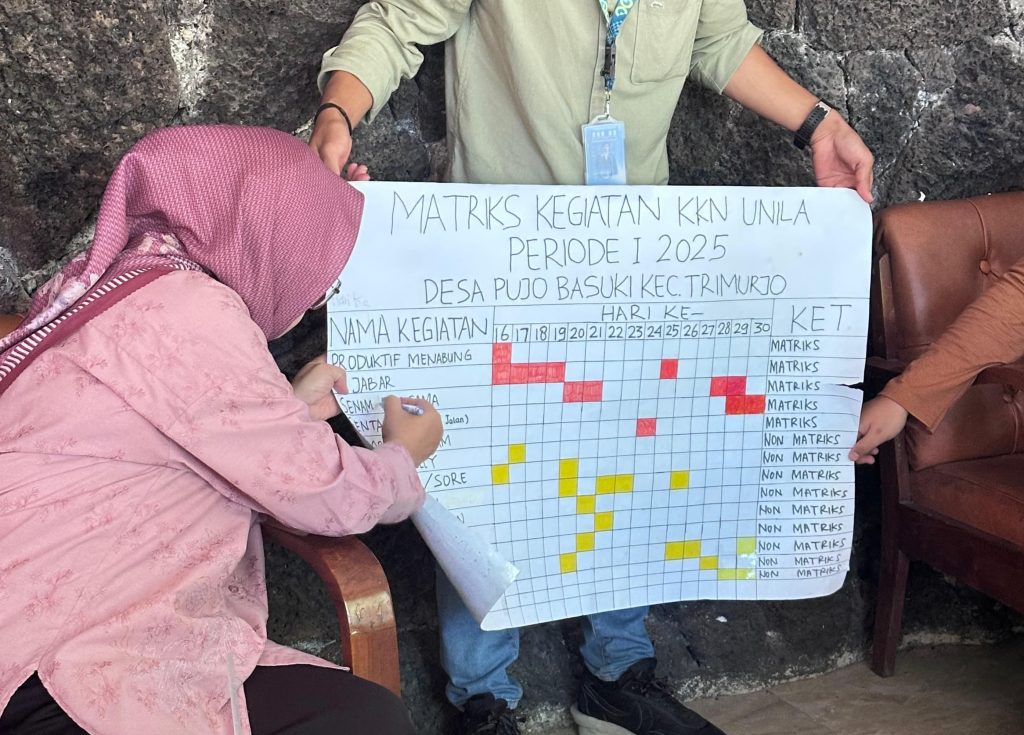 MATRIKS KEGIATAN KKN UNILA
PERIODE I 2025
DESA PUJO BASUKI KEC. TRIMURJO
NAMA KEGIATAN
HARI KE-
KET
16 17 18 19 20 21 22 23 24 25 26 27 28 29 30
PRODUKTIF MENABUNG
MATRIKS
JABAR
MATRIKS
SENAM
MATRIKS
Jalan)
MATRIKS
NON MATRIKS
NON MATRIKS
/SORE
NON MATRIKS
NON MATRIKS
NON MATRIKS
NON MATRIKS
NON MATRIKS
NON MATRIKS
NON MATRIKS